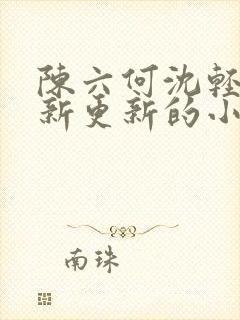 陳六何沈輕
新更新的小
南珠